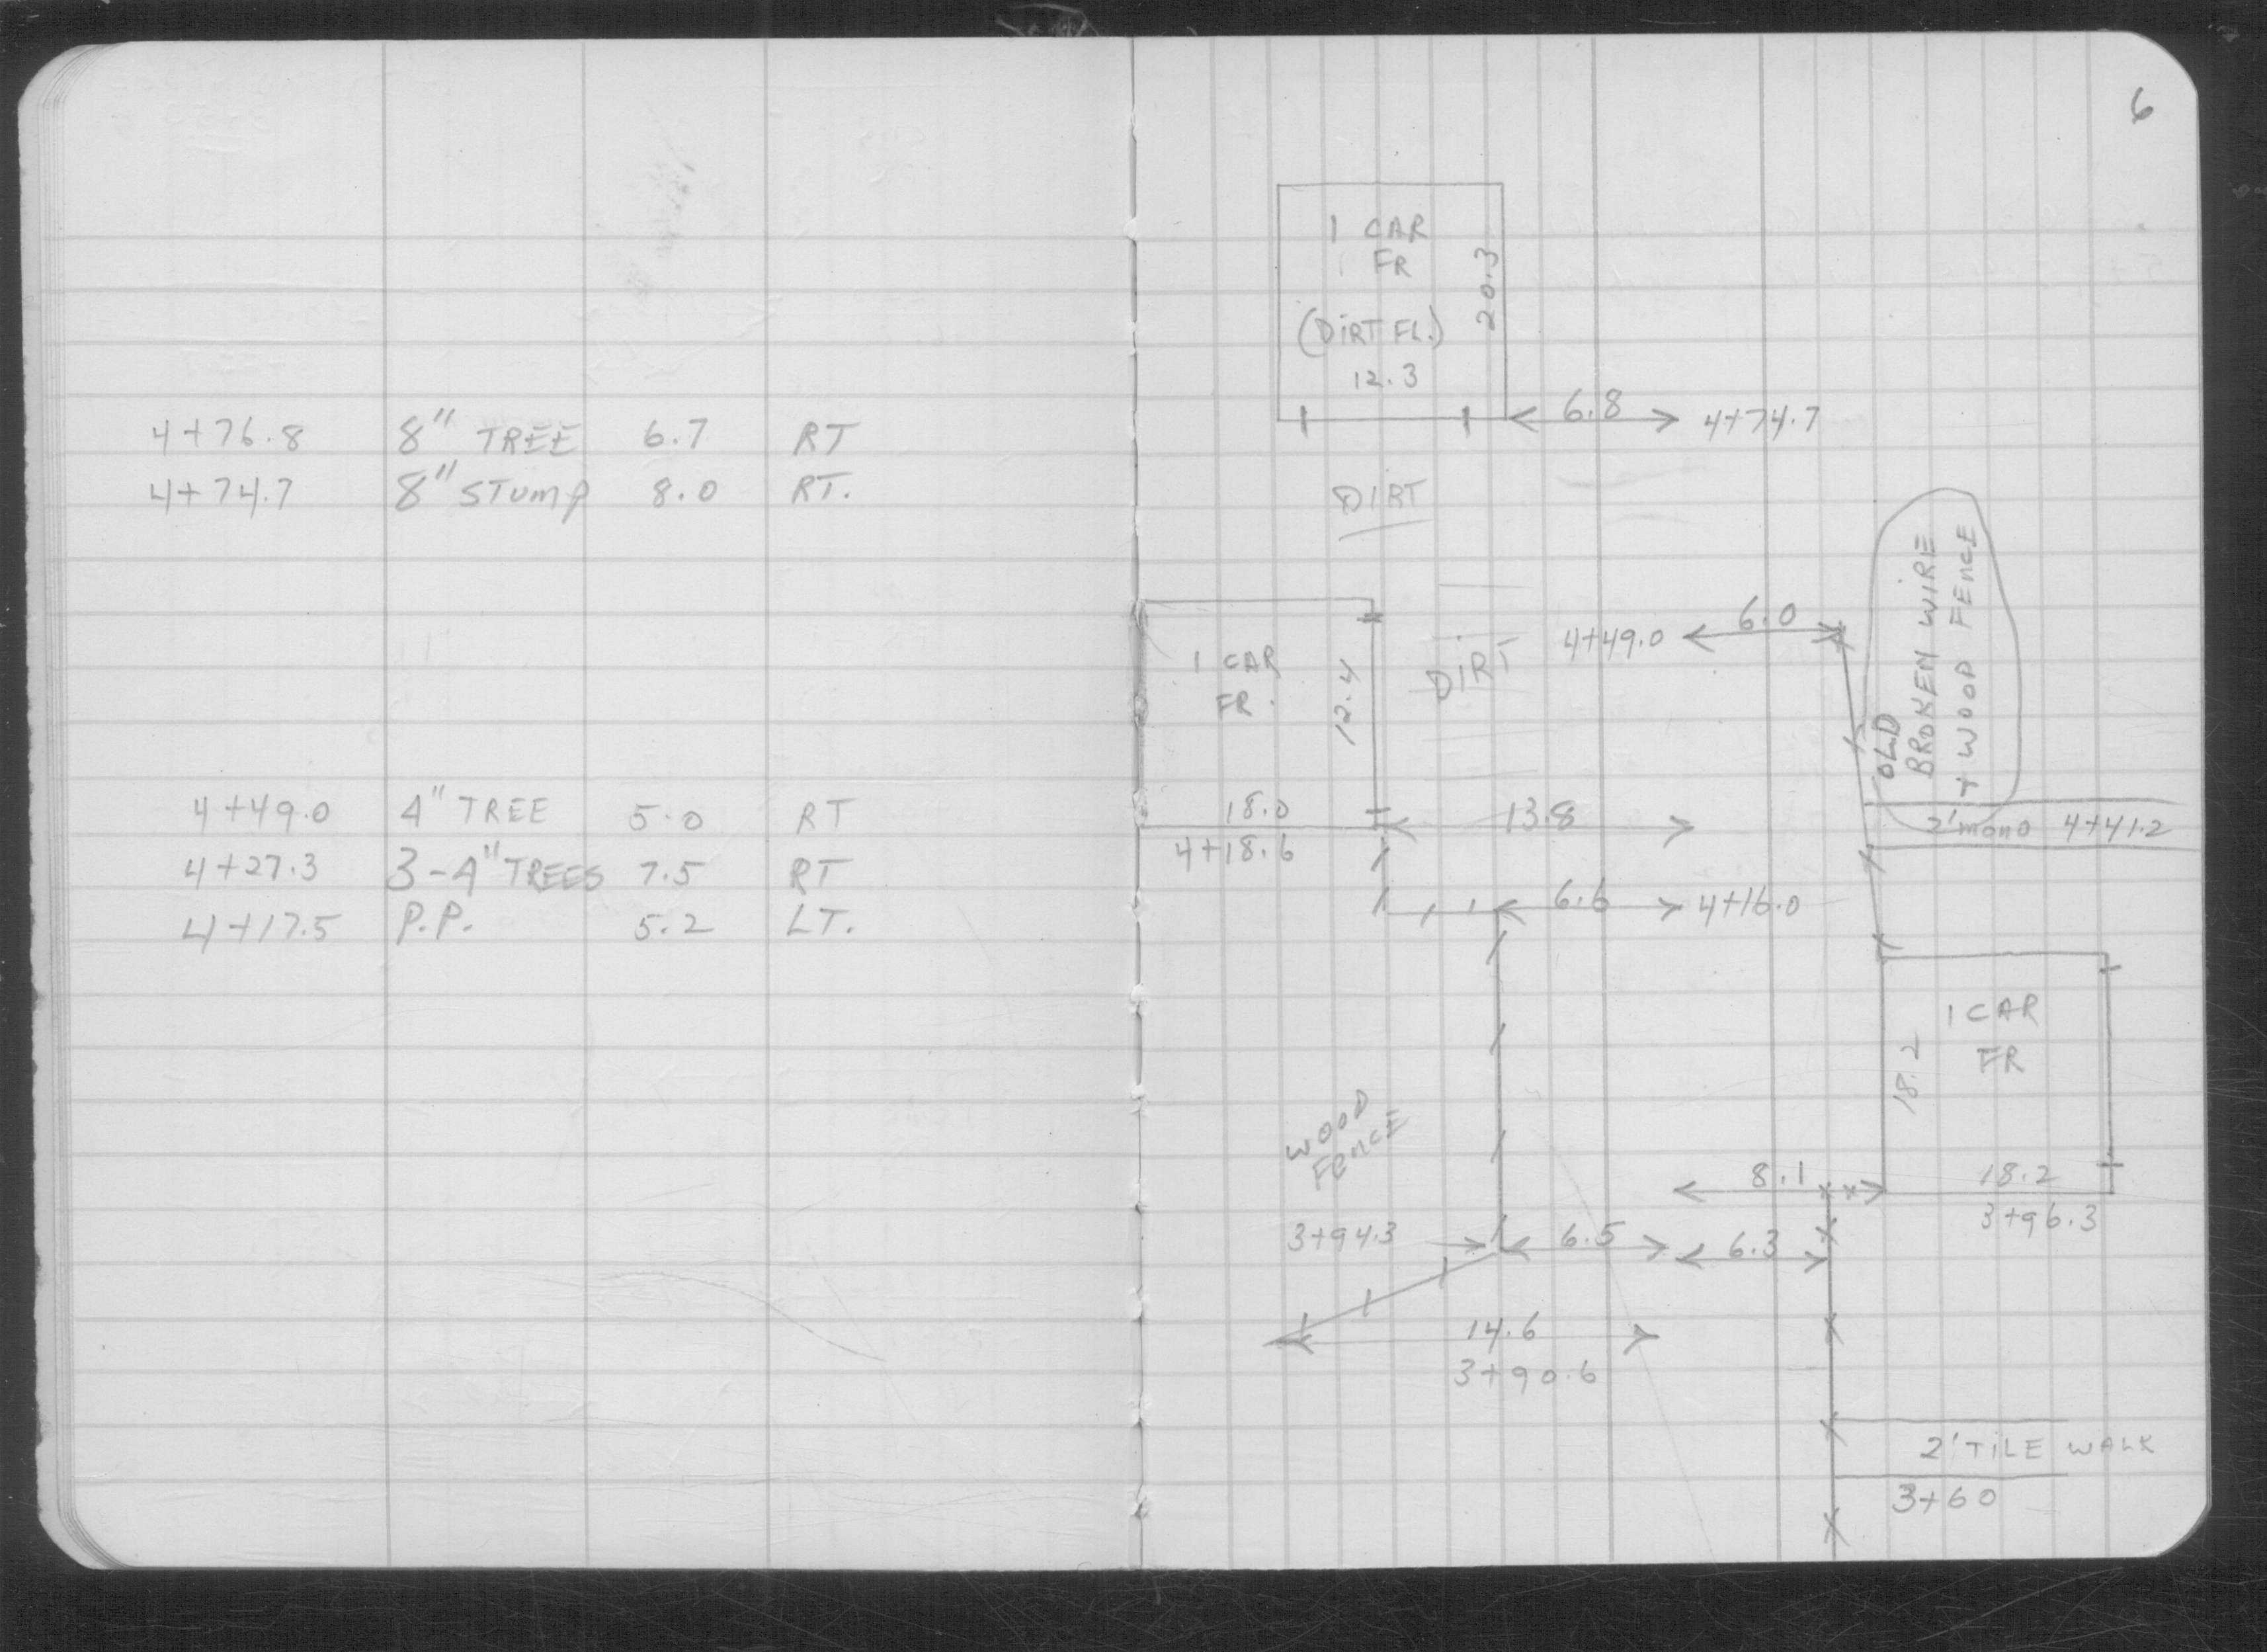 4+76.8 8" TREE 6.7 RT
4+74.7 8" STUMP 8.0 RT.
4+49.0 4" TREE 5.0 RT
4+27.3 3-4" TREES 7.5 RT
4+17.5 P.P. 5.2 LT.
6
1 CAR
FR
(DIRT FL.)
12.3
20.3
6.8 4+74.7
DIRT
1 CAR
FR.
12.4
18.0
4+18.6
DIRT
4+49.0 6.0
OLD
BROKEN WIRE
+ WOOD FENCE
13.8
2' mono 4+41.2
6.6 4+16.0
1 CAR
FR
18.2
18.2
3+96.3
WOOD
FENCE
8.1
3+94.3 6.5 6.3
14.6
3+90.6
2' TILE WALK
3+60